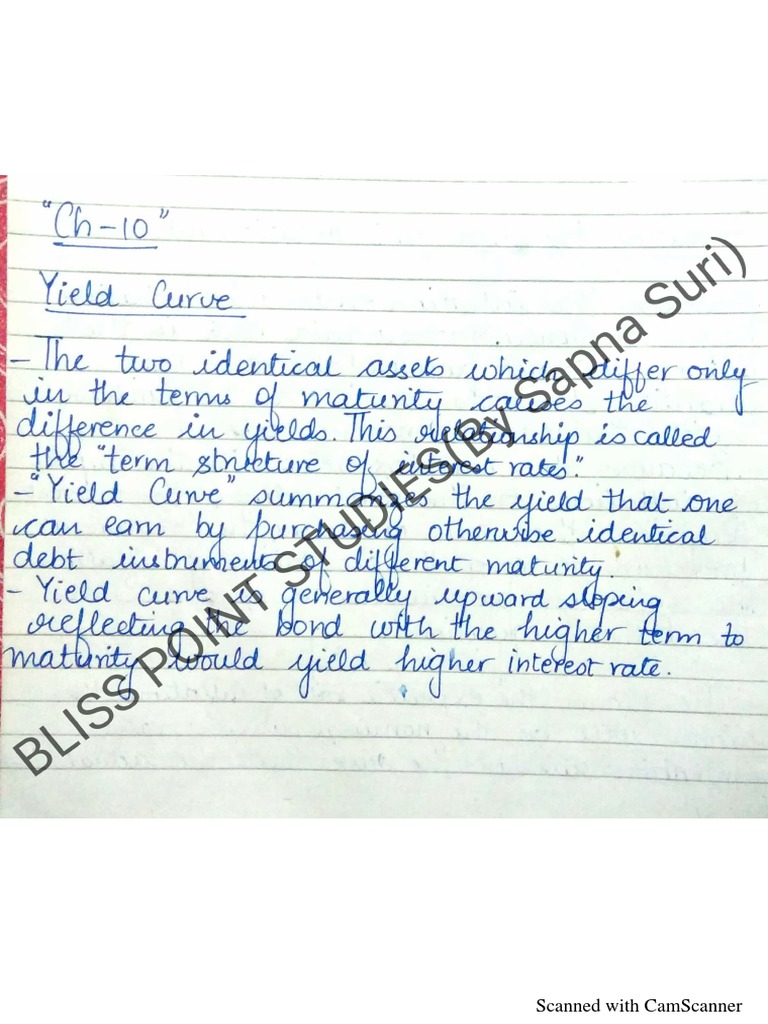 "Ch-10"
Yield Curve
- The two identical assets which differ only
in the terms of maturity causes the
difference in yields. This relationship is called
the "term structure of interest rates."
- "Yield Curve" summarizes the yield that one
can earn by purchasing otherwise identical
debt instruments of different maturity.
- Yield curve is generally upward sloping
reflecting the bond with the higher term to
maturity would yield higher interest rate.
BLISS POINT STUDIES(By Sapna Suri)
Scanned with CamScanner